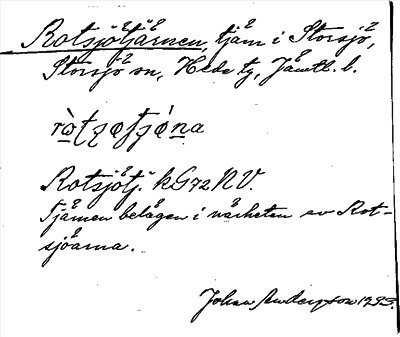 Rotsjötjärnen, tjärn i Storsjö,
Storsjö sn, Hede tg, Jämtl. l.
Rotsjötj. kG72NV.
Tjärnen belägen i närheten av Rot-
sjöarna.
Johan Anderzson 1933.